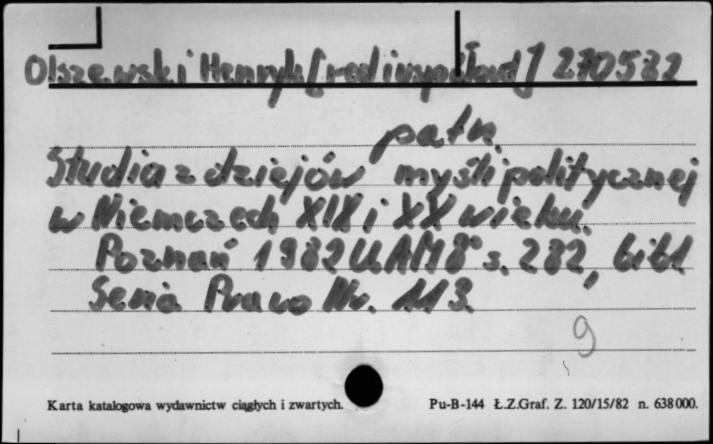 Olszewski Henryk [red i współaut] 270532
patrz
Studia z dziejów myśli politycznej
w Niemczech XIX i XX wieku.
Poznań 1982 UAM 8° s. 282, bibl
Seria Prawo Nr. 113.
9
Karta katalogowa wydawnictw ciągłych i zwartych.
Pu-B-144 Ł.Z.Graf. Z. 120/15/82 n. 638 000.